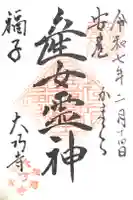 令和七年二月十四日
安産
かまくら
産女霊神
大巧寺
福子